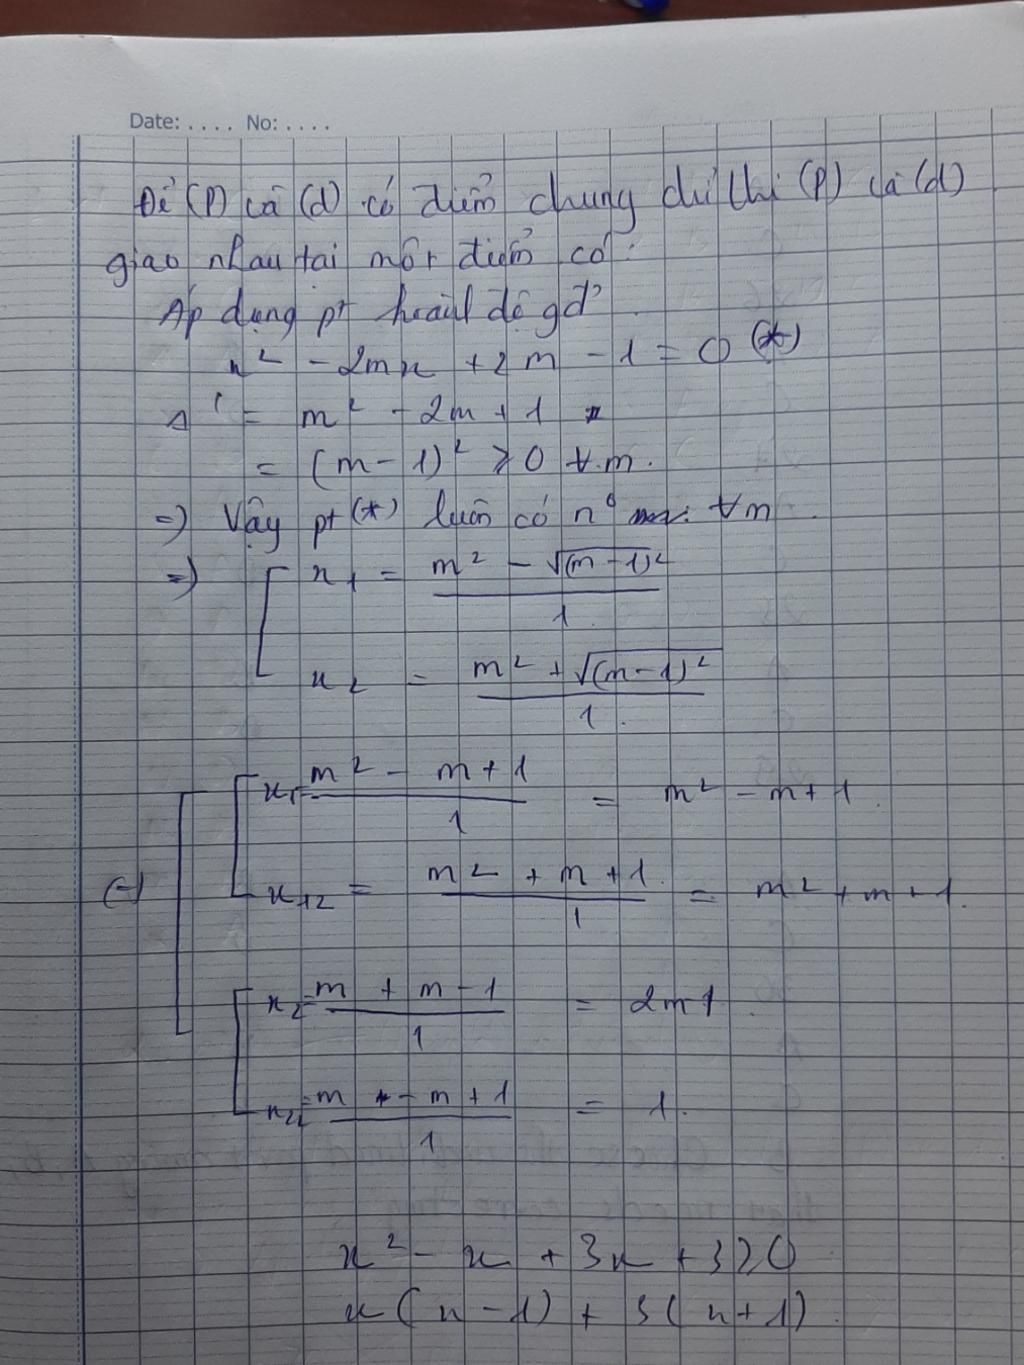 Date: .... No: ....
Để (P) và (d) có điểm chung chỉ thi (P) và (d)
giao nhau tại một điểm có:
Áp dụng pt hoành độ gđ
x² - 2mx + 2m - 1 = 0 (*)
Δ' = m² - 2m + 1
= (m - 1)² ≥ 0 ∀ m.
=> Vậy pt (*) luôn có n⁰ ∀m
=> [ x₁ = (m² - √(m - 1)²) / 1
x₂ = (m² + √(m - 1)²) / 1.
x₁ = (m² - m + 1) / 1 = m² - m + 1
x₁₂ = (m² + m + 1) / 1 = m² + m + 1.
x₂ = (m + m - 1) / 1 = 2m 1
= (m - m + 1) / 1 = 1.
x² - x + 3x + 3 ≥ 0
x(x - 1) + 3(x + 1)